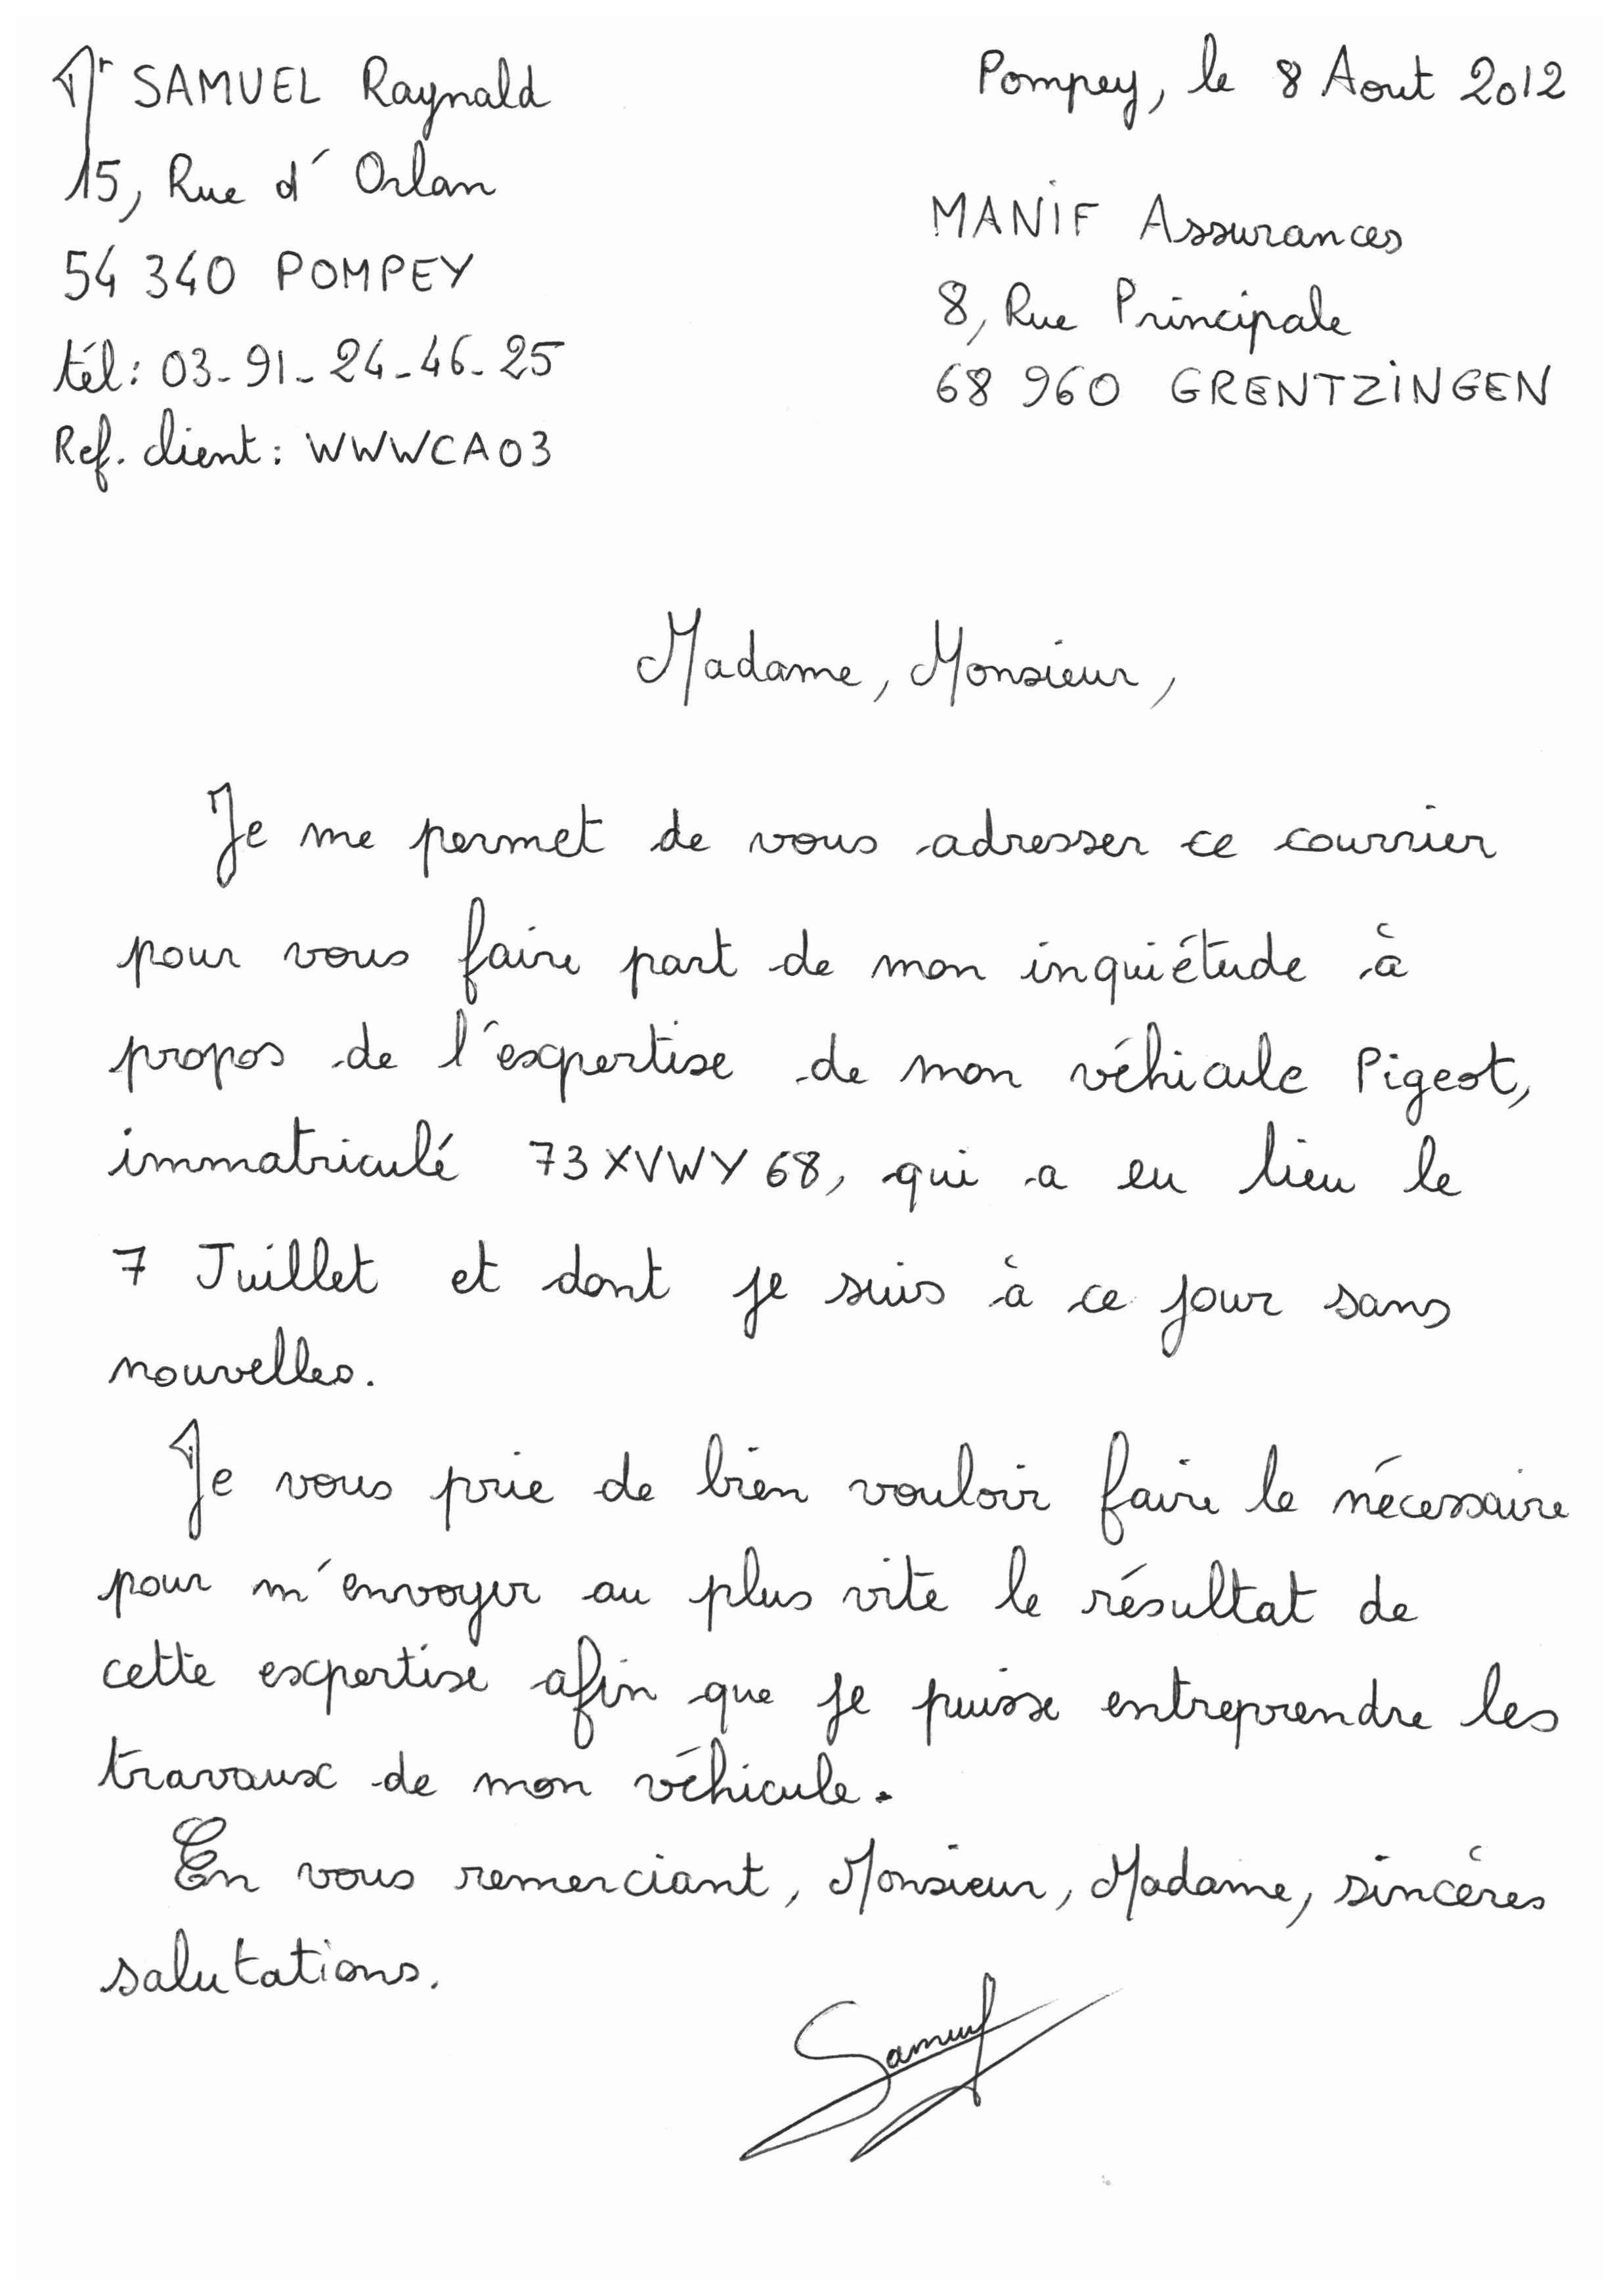 Mr SAMUEL Raynald
15, Rue d'Orlan
54 340 POMPEY
tél: 03-91-24-46-25
Ref. client: WWWCA03
Pompey, le 8 Aout 2012
MANIF Assurances
8, Rue Principale
68 960 GRENTZINGEN
Madame, Monsieur,
Je me permet de vous adresser ce courrier
pour vous faire part de mon inquiétude à
propos de l'expertise de mon véhicule Pigeot,
immatriculé 73XVWY68, qui a eu lieu le
7 Juillet et dont je suis à ce jour sans
nouvelles.
Je vous prie de bien vouloir faire le nécessaire
pour m'envoyer au plus vite le résultat de
cette expertise afin que je puisse entreprendre les
travaux de mon véhicule.
En vous remerciant, Monsieur, Madame, sincères
salutations.
Samuel